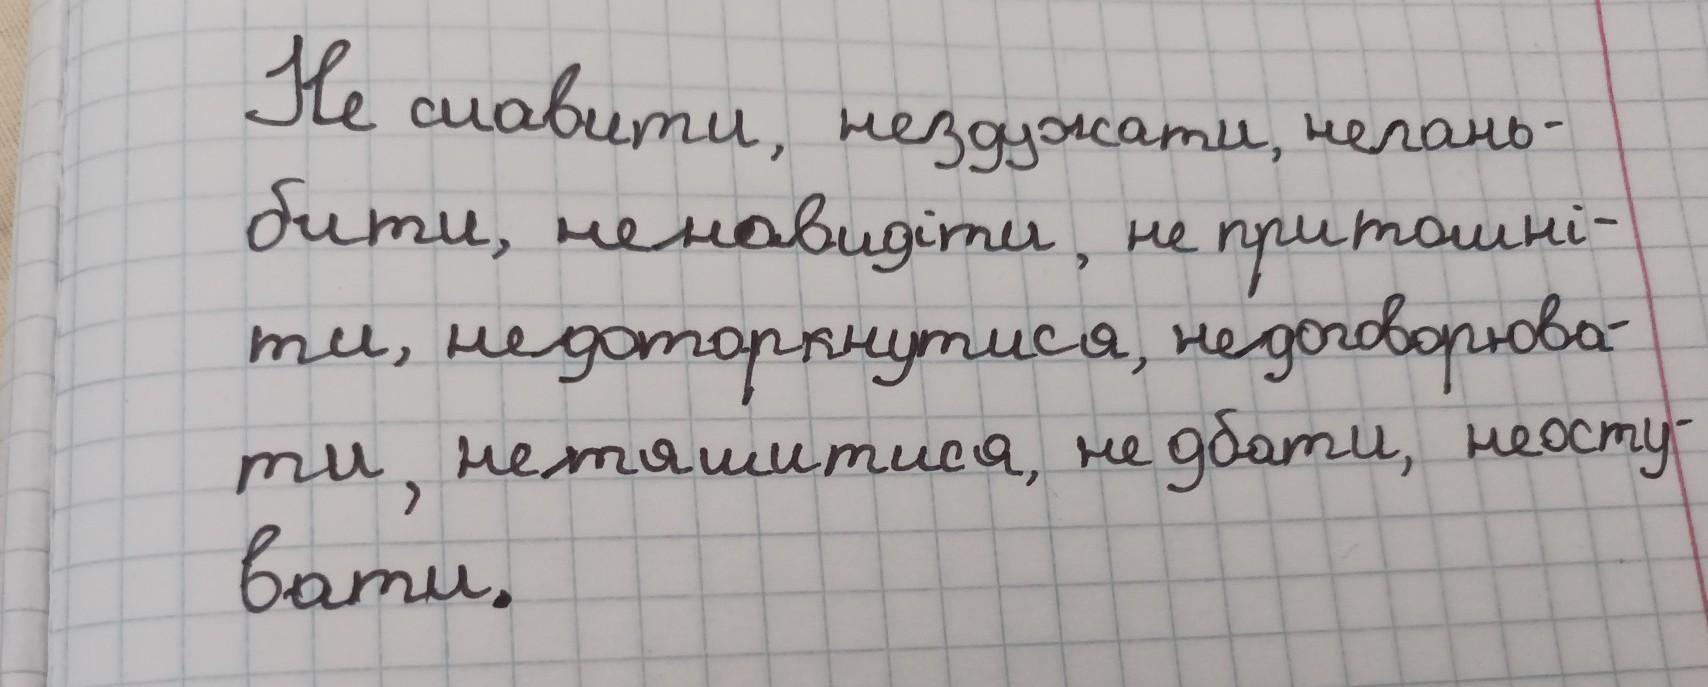 Не славити, нездужати, неганьбити, ненавидіти, не притомні-
ти, недоторкнутися, недоговорюва-
ти, нетямитися, не дбати, неосту-
вати.